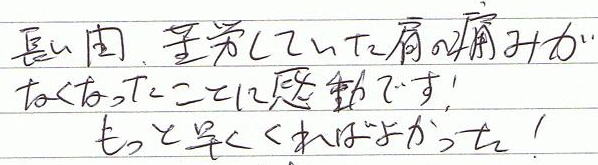 長い間、苦労していた肩の痛みが
なくなったことに感動です!
もっと早くくればよかった!